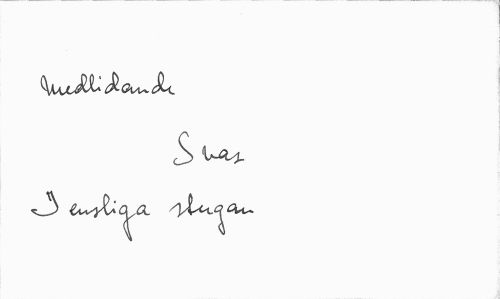 Medlidande
Svar
I ensliga stugan